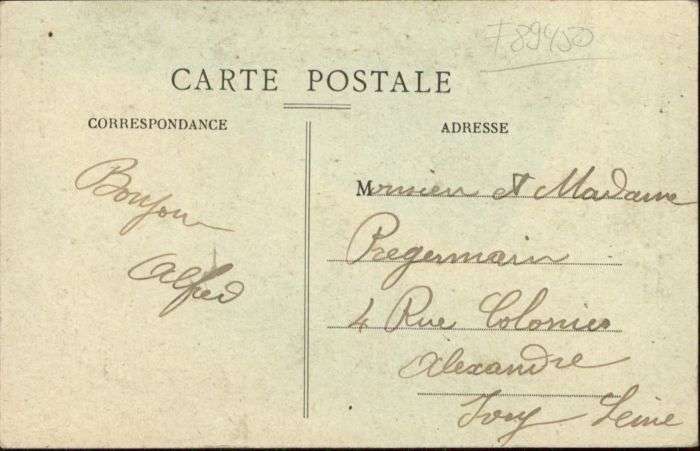 F89450
CARTE POSTALE
CORRESPONDANCE
ADRESSE
Bonjour
Alfred
Monsieur et Madame
Pregermain
4 Rue Colonies
Alexandre
Ivry Seine